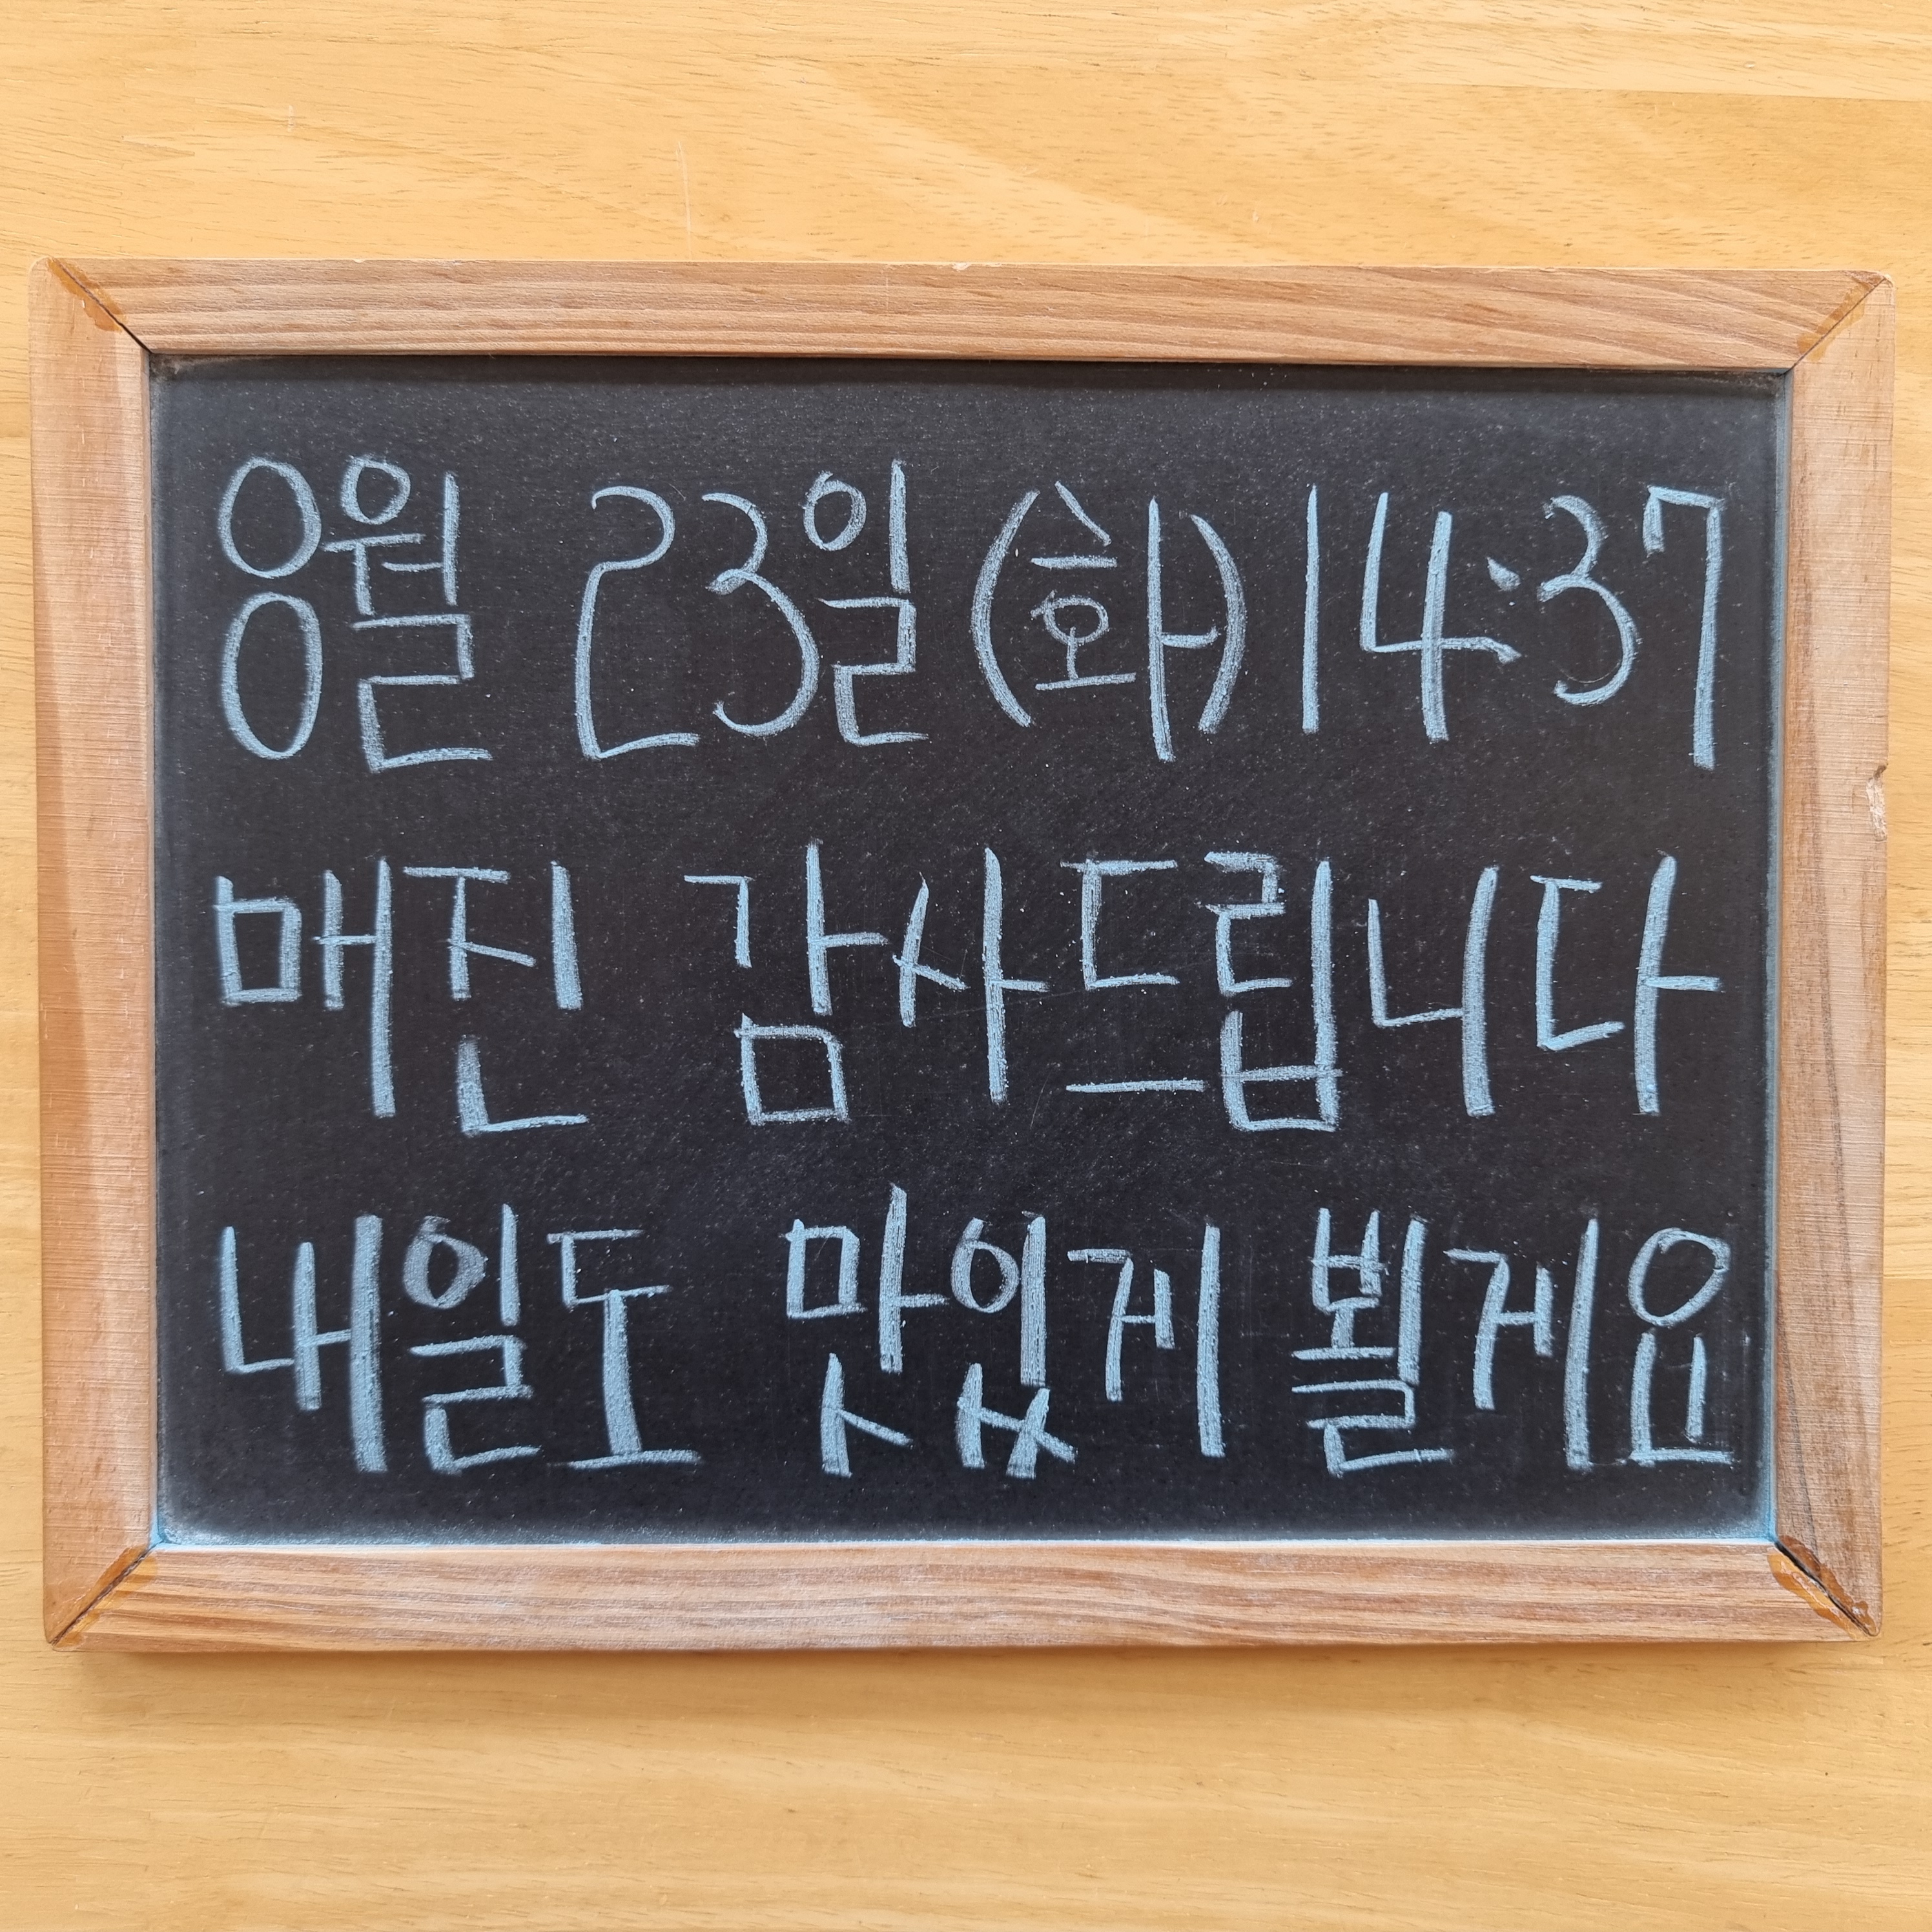 8월 23일(화)14:37
매진 감사드립니다
내일도 맛있게 뵐게요